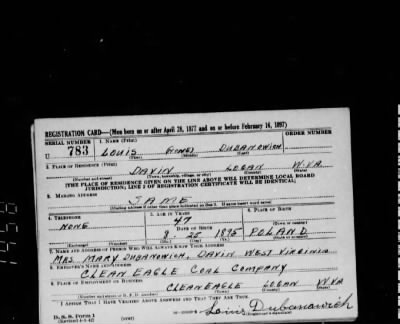 REGISTRATION CARD—(Men born on or after April 28, 1877 and on or before February 16, 1897)
SERIAL NUMBER 1. NAME (Print) ORDER NUMBER
U 783 LOUIS (NONE) DUBANOWICH
(First) (Middle) (Last)
2. PLACE OF RESIDENCE (Print)
DAVIN LOGAN W-VA
(Number and street) (Town, township, village, or city) (County) (State)
[THE PLACE OF RESIDENCE GIVEN ON THE LINE ABOVE WILL DETERMINE LOCAL BOARD
JURISDICTION; LINE 2 OF REGISTRATION CERTIFICATE WILL BE IDENTICAL]
3. MAILING ADDRESS
SAME
[Mailing address if other than place indicated on line 2. If same insert word same]
4. TELEPHONE 5. AGE IN YEARS 6. PLACE OF BIRTH
NONE 47
DATE OF BIRTH (Town or county)
8 - 25 1895 POLAND
(Exchange) (Number) (Mo.) (Day) (Yr.) (State or country)
7. NAME AND ADDRESS OF PERSON WHO WILL ALWAYS KNOW YOUR ADDRESS
MRS. MARY DUBANOWICH, DAVIN WEST VIRGINIA
8. EMPLOYER'S NAME AND ADDRESS
CLEAN EAGLE COAL COMPANY
9. PLACE OF EMPLOYMENT OR BUSINESS
CLEANEAGLE LOGAN W VA
(Number and street or R. F. D. number) (Town) (County) (State)
I AFFIRM THAT I HAVE VERIFIED ABOVE ANSWERS AND THAT THEY ARE TRUE.
D. S. S. Form 1 Louis Dubanowich
(Revised 4-1-42) (over)